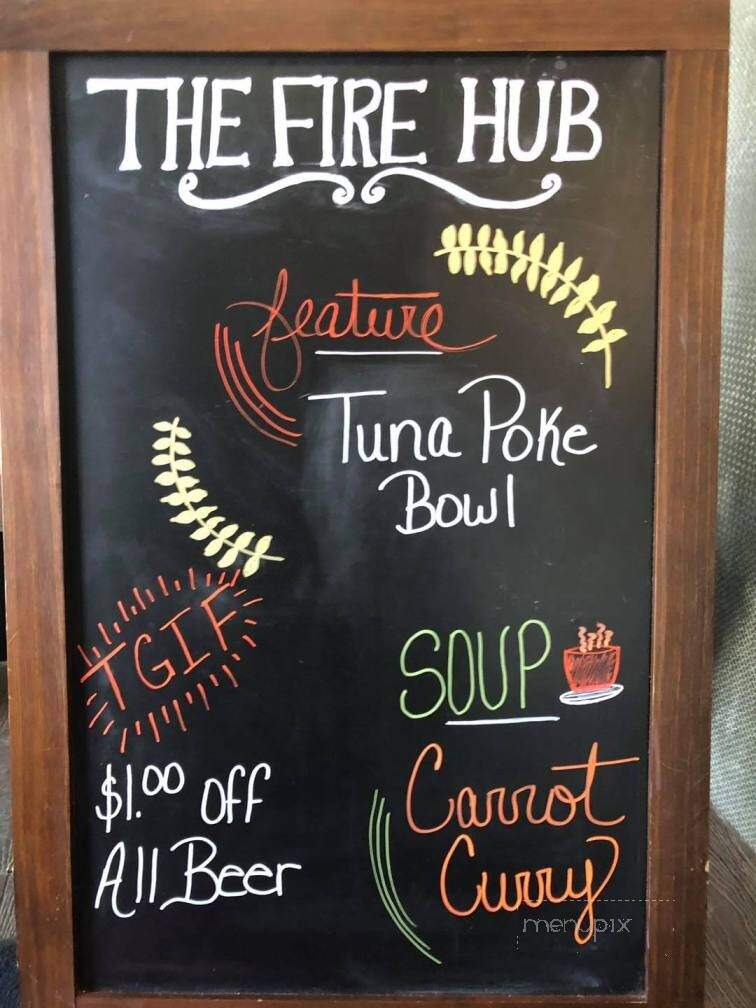 THE FIRE HUB
feature
Tuna Poke
Bowl
TGIF
$1.00 Off
All Beer
SOUP
Carrot
Curry
menupix